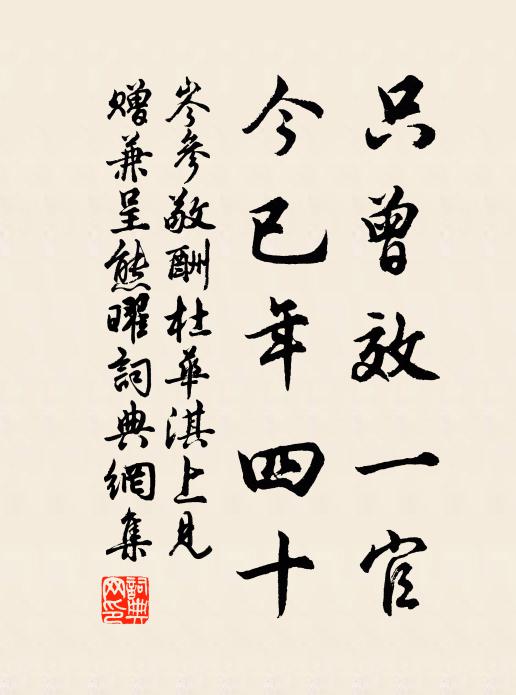 只曾效一官
今已年四十
岑參敬酬杜華淇上見
贈兼呈熊曜詞典網集
詞典網印